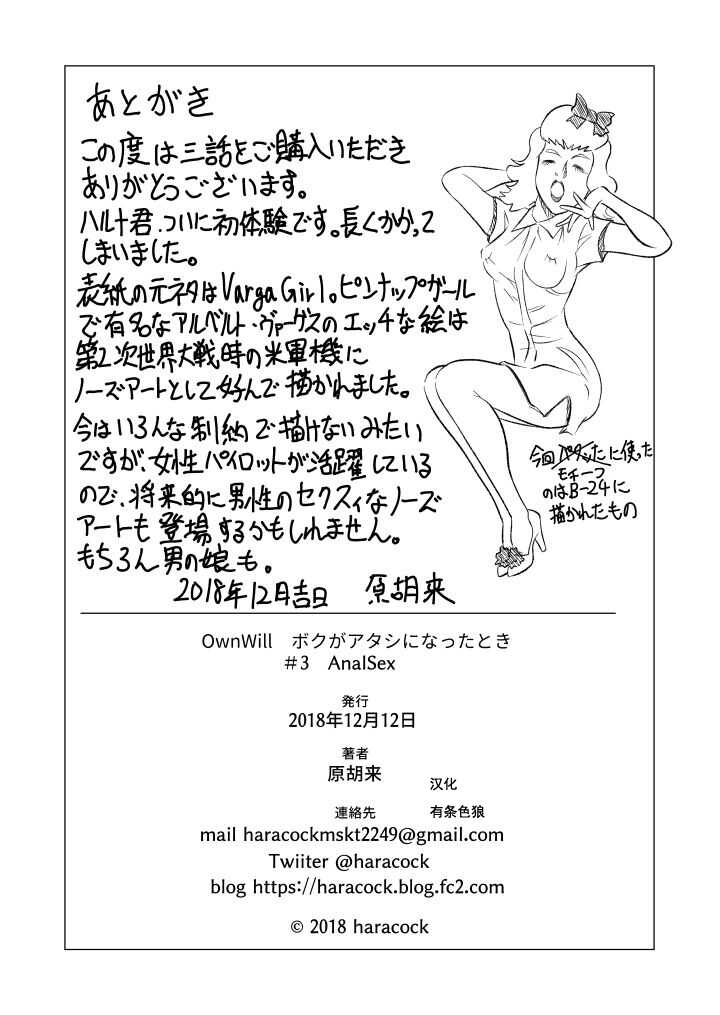 あとがき
この度は三話をご購入いただき
ありがとうございます。
ハルト君、ついに初体験です。長くかかって
しまいました。
表紙の元ネタはVarga Girl。ピンナップガール
で有名なアルベルト・ヴァーゲスのエッチな絵は
第2次世界大戦時の米軍機に
ノーズアートとして好んで描かれました。
今はいろんな制約で描けないみたい
ですが、女性パイロットが活躍している
ので、将来的に男性のセクスィなノーズ
アートも登場するかもしれません。
もちろん男の娘も。
2018年12月吉日 原胡来
今回 に使った
モチーフ
のはB-24に
描かれたもの
OwnWill ボクがアタシになったとき
#3 AnalSex
発行
2018年12月12日
著者
原胡来
汉化
連絡先
有条色狼
mail haracockmskt2249@gmail.com
Twiiter @haracock
blog https://haracock.blog.fc2.com
© 2018 haracock